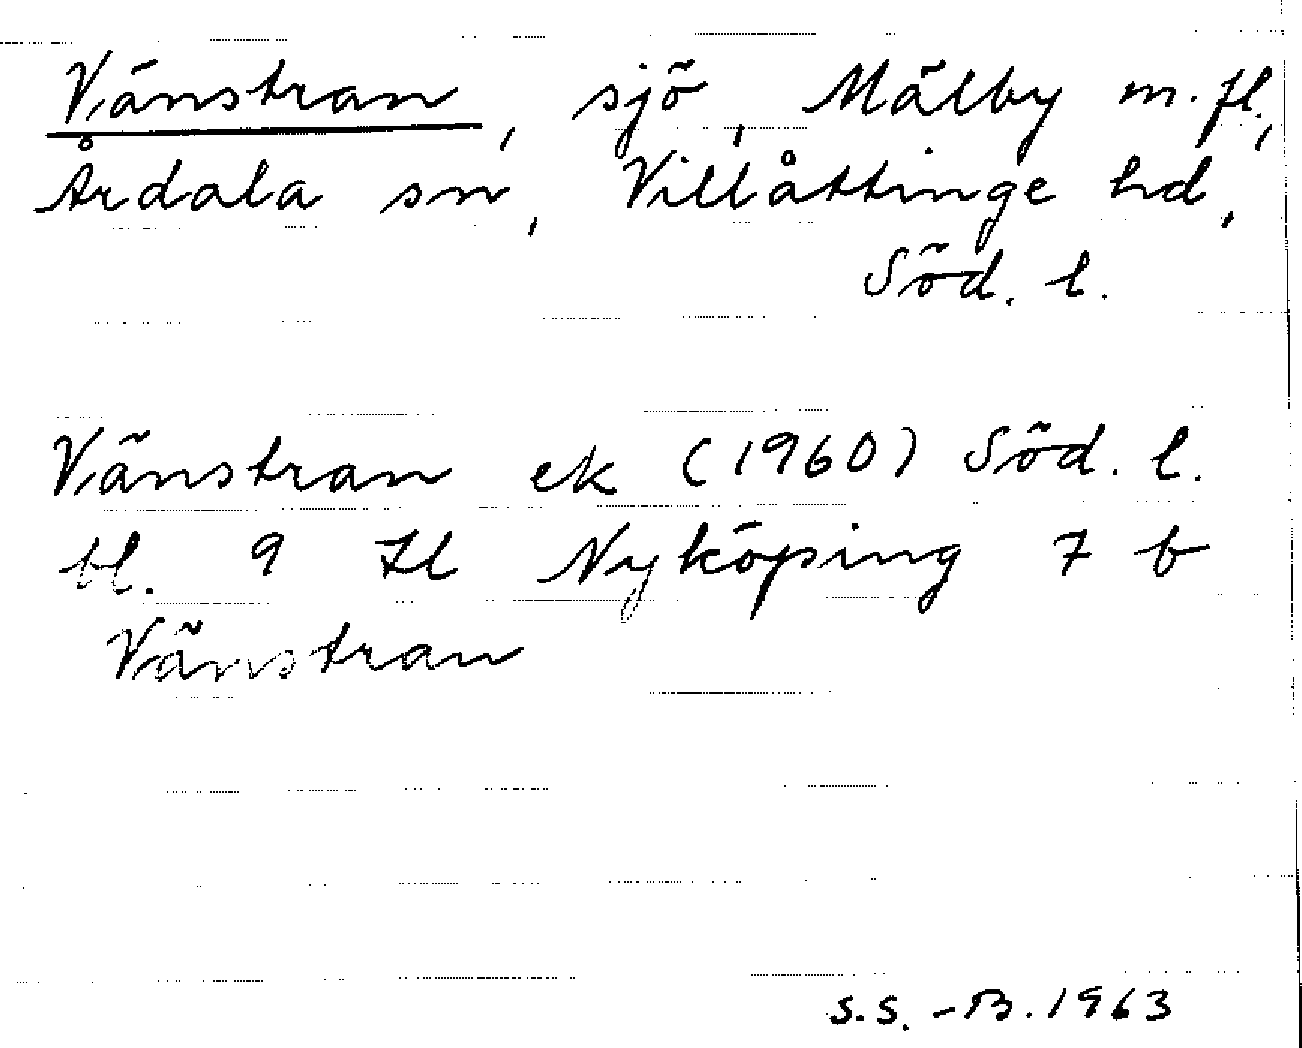 Vänstran, sjö, Mälby m.fl.,
Årdala sn, Villåttinge hd,
Söd. l.
Vänstran ek (1960) Söd. l.
bl. 9 Il Nyköping 7 b
Vänstran
S.S. -B. 1963